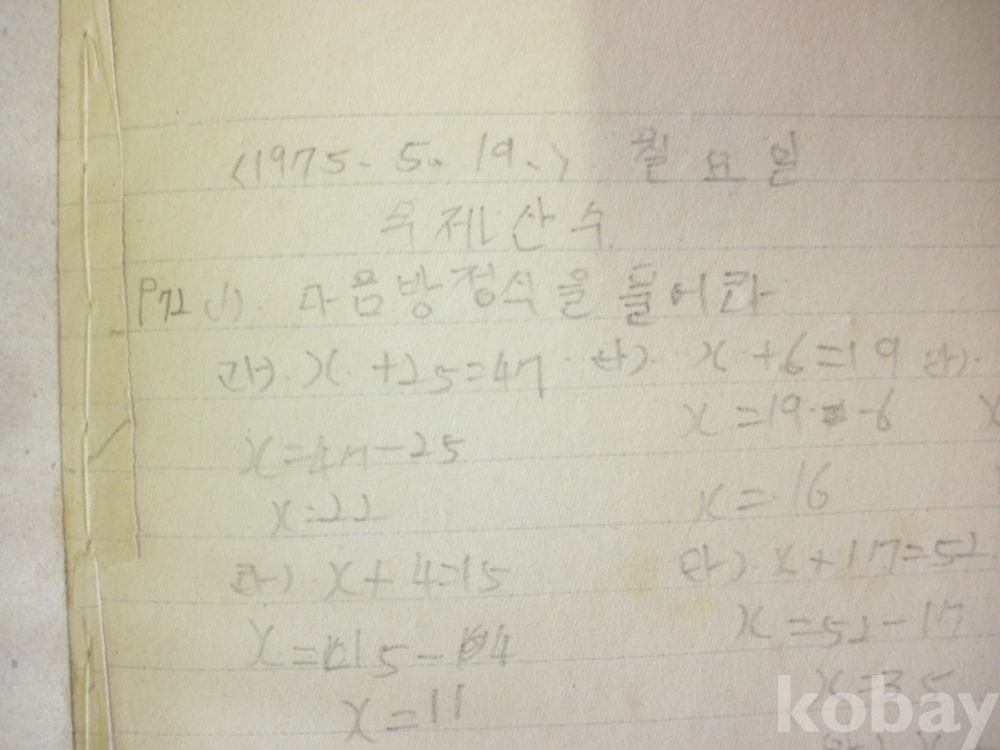 <1975. 5. 19.> 월요일
숙제산수
P72 (1). 다음방정식을 풀어라
가) x + 25=47 나) x + 6 = 19 다)
x = 19 - 6 x
x=47-25
x=22 x = 16
라) x + 4=15 마) x + 17=52
x = 15 - 4 x = 52 - 17
x = 11 x=35
kobay